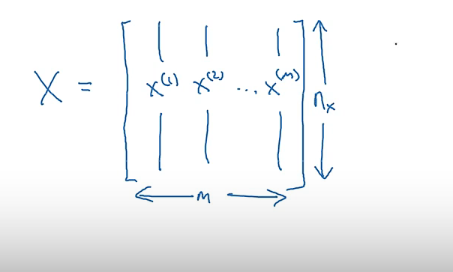 X = [ x⁽¹⁾ x⁽²⁾ ... x⁽ᵐ⁾ ] nₓ
m